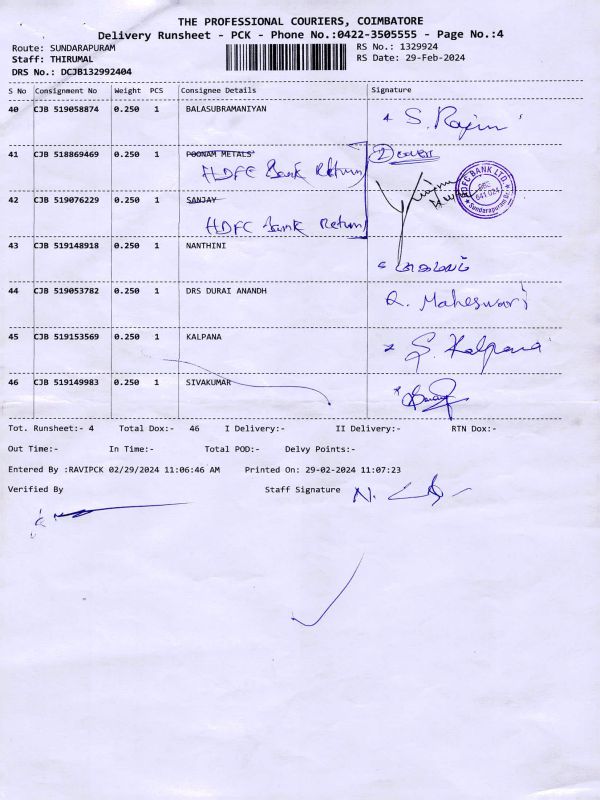 THE PROFESSIONAL COURIERS, COIMBATORE
Delivery Runsheet - PCK - Phone No.:0422-3505555 - Page No.:4
Route: SUNDARAPURAM
RS No.: 1329924
Staff: THIRUMAL
RS Date: 29-Feb-2024
DRS No.: DCJB132992404
S No Consignment No Weight PCS Consignee Details Signature
40 CJB 519058874 0.250 1 BALASUBRAMANIYAN S. Rajin
41 CJB 518869469 0.250 1 POONAM METALS
HDFC Bank Return
HDFC BANK LTD.
641 024
Sundarapuram Br.
42 CJB 519076229 0.250 1 SANJAY
HDFC Bank Return
43 CJB 519148918 0.250 1 NANTHINI
44 CJB 519053782 0.250 1 DRS DURAI ANANDH R. Maheswari
45 CJB 519153569 0.250 1 KALPANA S. Kalpana
46 CJB 519149983 0.250 1 SIVAKUMAR
Tot. Runsheet:- 4 Total Dox:- 46 I Delivery:- II Delivery:- RTN Dox:-
Out Time:- In Time:- Total POD:- Delvy Points:-
Entered By :RAVIPCK 02/29/2024 11:06:46 AM Printed On: 29-02-2024 11:07:23
Verified By Staff Signature